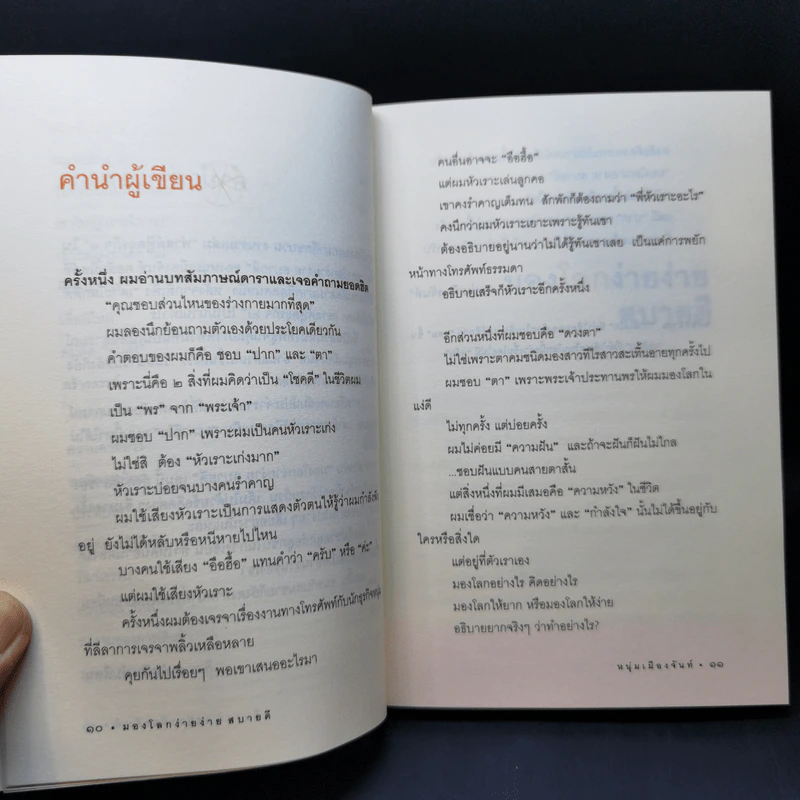 คำนำผู้เขียน
ครั้งหนึ่ง ผมอ่านบทสัมภาษณ์ดาราและเจอคำถามยอดฮิต
“คุณชอบส่วนไหนของร่างกายมากที่สุด”
ผมลองนึกย้อนถามตัวเองด้วยประโยคเดียวกัน
คำตอบของผมก็คือ ชอบ “ปาก” และ “ตา”
เพราะนี่คือ ๒ สิ่งที่ผมคิดว่าเป็น “โชคดี” ในชีวิตผม
เป็น “พร” จาก “พระเจ้า”
ผมชอบ “ปาก” เพราะผมเป็นคนหัวเราะเก่ง
ไม่ใช่สิ ต้อง “หัวเราะเก่งมาก”
หัวเราะบ่อยจนบางคนรำคาญ
ผมใช้เสียงหัวเราะเป็นการแสดงตัวตนให้รู้ว่าผมกำลังฟัง
อยู่ ยังไม่ได้หลับหรือหนีหายไปไหน
บางคนใช้เสียง “อือฮื้อ” แทนคำว่า “ครับ” หรือ “ค่ะ”
แต่ผมใช้เสียงหัวเราะ
ครั้งหนึ่งผมต้องเจรจาเรื่องงานทางโทรศัพท์กับนักธุรกิจหนุ่ม
ที่ลีลาการเจรจาพลิ้วเหลือหลาย
คุยกันไปเรื่อยๆ พอเขาเสนออะไรมา
๑๐ • มองโลกง่ายง่าย สบายดี
คนอื่นอาจจะ “อือฮื้อ”
แต่ผมหัวเราะเล่นลูกคอ
เขาคงรำคาญเต็มทน สักพักก็ต้องถามว่า “พี่หัวเราะอะไร”
คงนึกว่าผมหัวเราะเยาะเพราะรู้ทันเขา
ต้องอธิบายอยู่นานว่าไม่ได้รู้ทันเขาเลย เป็นแค่การพยัก
หน้าทางโทรศัพท์ธรรมดา
อธิบายเสร็จก็หัวเราะอีกครั้งหนึ่ง
อีกส่วนหนึ่งที่ผมชอบคือ “ดวงตา”
ไม่ใช่เพราะตาคมชนิดมองสาวทีไรสาวสะเทิ้นอายทุกครั้งไป
ผมชอบ “ตา” เพราะพระเจ้าประทานพรให้ผมมองโลกใน
แง่ดี
ไม่ทุกครั้ง แต่บ่อยครั้ง
ผมไม่ค่อยมี “ความฝัน” และถ้าจะฝันก็ฝันไม่ไกล
...ชอบฝันแบบคนสายตาสั้น
แต่สิ่งหนึ่งที่ผมมีเสมอคือ “ความหวัง” ในชีวิต
ผมเชื่อว่า “ความหวัง” และ “กำลังใจ” นั้นไม่ได้ขึ้นอยู่กับ
ใครหรือสิ่งใด
แต่อยู่ที่ตัวเราเอง
มองโลกอย่างไร คิดอย่างไร
มองโลกให้ยาก หรือมองโลกให้ง่าย
อธิบายยากจริงๆ ว่าทำอย่างไร?
หนุ่มเมืองจันท์ • ๑๑